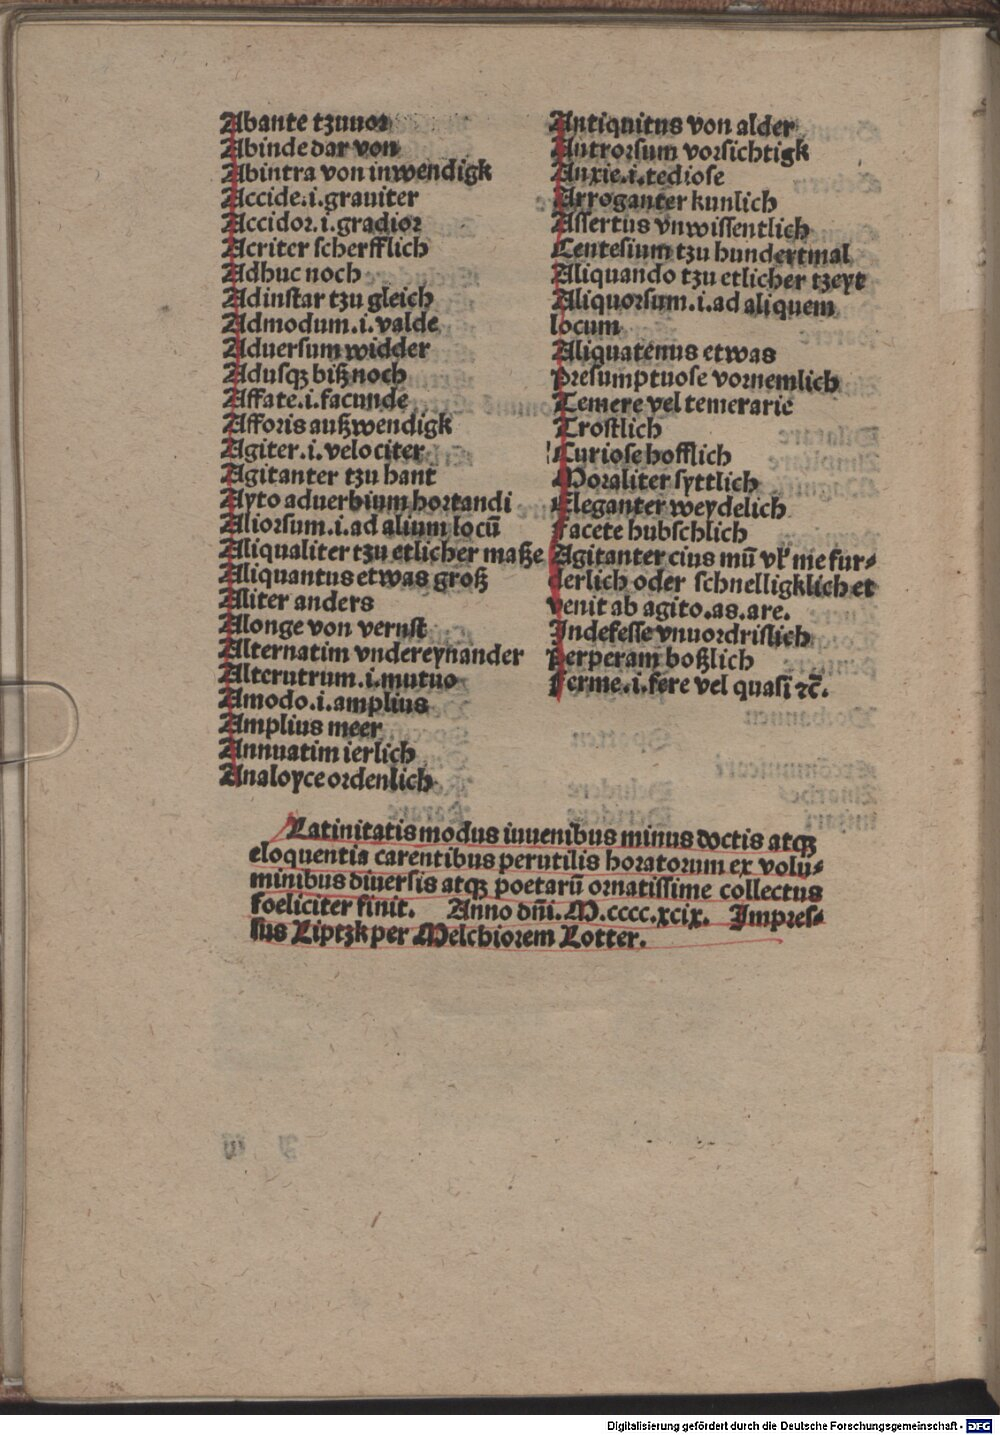 Abante tzuuor
Abinde dar von
Abintra von inwendigk
Accide.i.grauiter
Accidor.i.gradior
Acriter scherfflich
Adhuc noch
Adinstar tzu gleich
Admodum.i.valde
Aduersum widder
Adusqꝫ biß noch
Affate.i.facunde
Afforis außwendigk
Agiter.i.velociter
Agitanter tzu hant
Ayto aduerbium hortandi
Aliorsum.i.ad alium locū
Aliqualiter tzu etlicher maße
Aliquantus etwas groß
Aliter anders
Alonge von vernst
Alternatim vndereynander
Alterutrum.i.mutuo
Amodo.i.amplius
Amplius meer
Annuatim ierlich
Analoyce ordenlich
Antiquitus von alder
Antrorsum vorsichtigk
Anxie.i.tediose
Arroganter kunlich
Assertus vnwissentlich
Centesium tzu hundertmal
Aliquando tzu etlicher tzeyt
Aliquorsum.i.ad aliquem
locum
Aliquatenus etwas
Presumptuose vornemlich
Temere vel temerarie
Trostlich
Curiose hofflich
Moraliter syttlich
Eleganter weydelich
Facete hubschlich
Agitanter cius mū vl' me fur⸗
derlich oder schnelligklich et
venit ab agito.as.are.
Indefesse vnuordrislich
Perperam boßlich
Ferme.i.fere vel quasi ⁊c̄.
Latinitatis modus iuuenibus minus doctis atqꝫ
eloquentia carentibus perutilis horatorum ex volu⸗
minibus diuersis atqꝫ poetarū ornatissime collectus
foeliciter finit. Anno dn̄i.M.cccc.xcix. Impres⸗
sus Liptzk per Melchiorem Lotter.
Digitalisierung gefördert durch die Deutsche Forschungsgemeinschaft - DFG